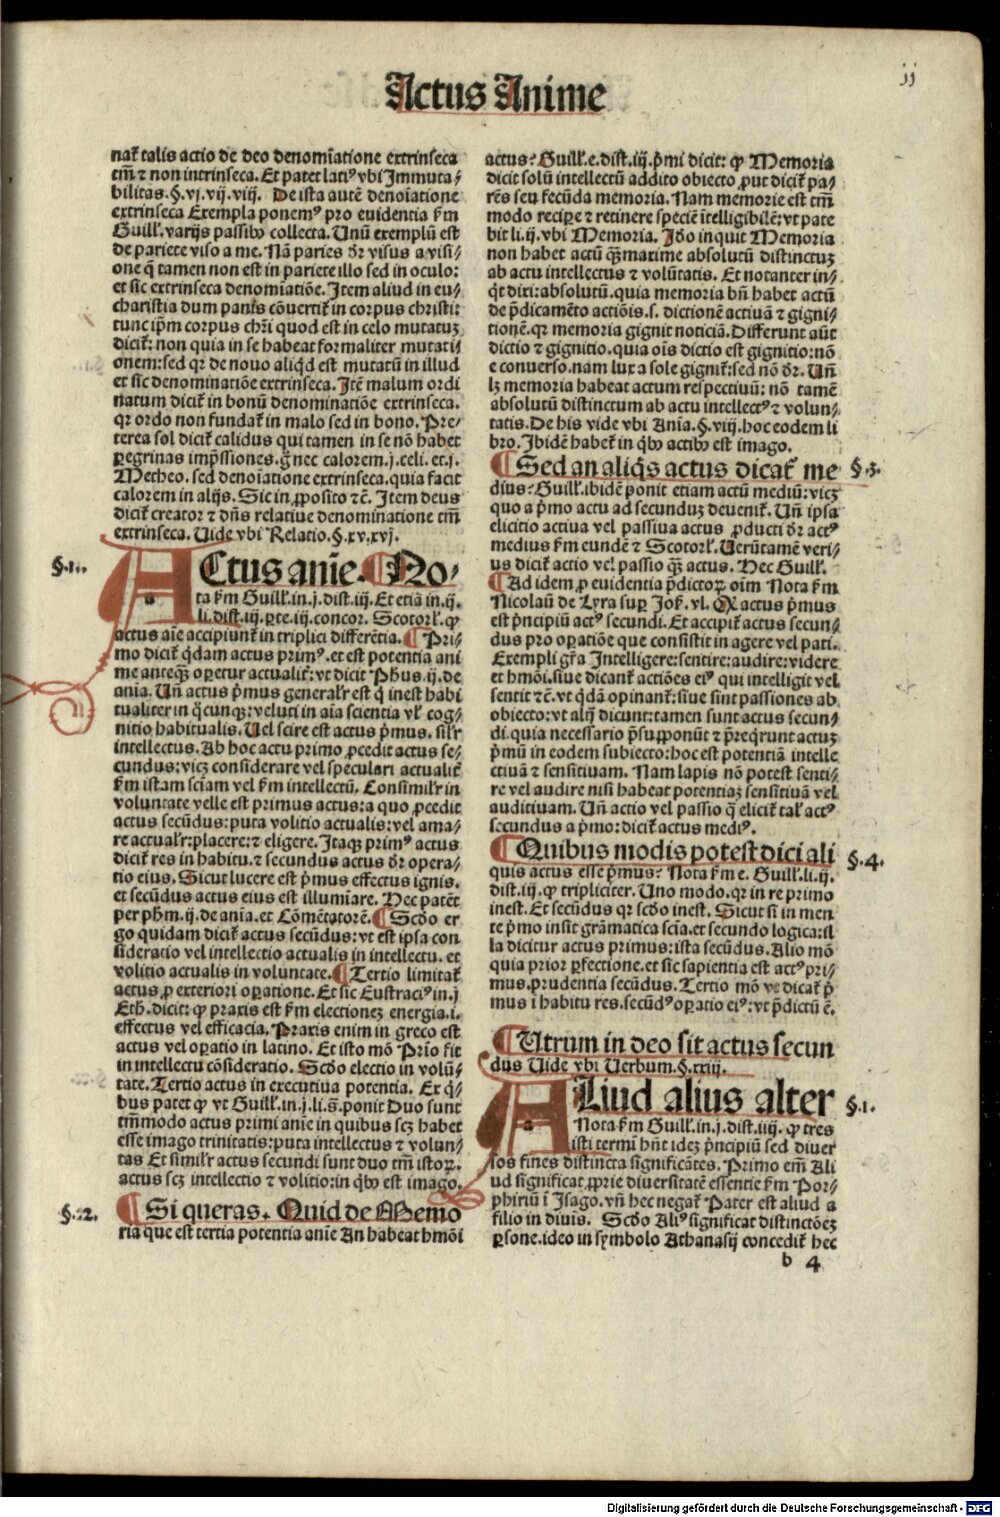 Actus Anime
jj
nat̄ talis actio de deo denomīatione extrinseca
tm̄ ⁊ non intrinseca. Et patet latiꝰ vbi Immuta⸗
bilitas. §. vj. vij. viij. De ista autē denoīatione
extrinseca Exempla ponemꝰ pro euidentia ẜm
Guill. varijs passibꝫ collecta. Unū exemplū est
de pariete viso a me. Nā paries dr̄ visus a visi⸗
one q̄ tamen non est in pariete illo sed in oculo:
et sic extrinseca denomīatiōe. Item aliud in eu⸗
charistia dum panis cōuertit̄ in corpus christi:
tunc ip̄m corpus chr̄i quod est in celo mutatuꝫ
dicit̄: non quia in se habeat formaliter mutati⸗
onem: sed qꝛ de nouo aliqd̄ est mutatū in illud
et sic denominatiōe extrinseca. Itē malum ordi
natum dicit̄ in bonū denominatiōe extrinseca.
qꝛ ordo non fundat̄ in malo sed in bono. Pre⸗
terea sol dicit̄ calidus qui tamen in se nō habet
ꝑegrinas imp̄ssiones. g̈ nec calorem. j. celi. et. j.
Metheo. sed denoīatione extrinseca. quia facit
calorem in alijs. Sic in ꝓposito ⁊c̄. Item deus
dicit̄ creator ⁊ dn̄s relatiue denominatione tm̄
extrinseca. Uide vbi Relatio. §. xv. xvj.
§. 1.
ACtus anīe. ¶ No⸗
ta ẜm Guill. in. j. dist. iij. Et etiā in. ij.
li. dist. iij. ꝑte. iij. concor. Scotorꝵ. ꝙ
actus aīe accipiunt̄ in triplici differētia. ¶ Pri⸗
mo dicit̄ q̇dam actus primꝰ. et est potentia ani
me anteqꝫ oꝑetur actualit̄: vt dicit Ph̄us. ij. de
ania. Un̄ actus p̄mus generalr̄ est q̄ inest habi
tualiter in q̄cunqꝫ: veluti in aīa scientia vl̄ cog⸗
nitio habitualis. Uel scire est actus p̄mus. silr̄
intellectus. Ab hoc actu primo ꝓcedit actus se⸗
cundus: vicꝫ considerare vel speculari actualit̄
ẜm istam sciam vel ẜm intellectū. Consimilr̄ in
voluntate velle est primus actus: a quo ꝓcedit
actus secūdus: puta volitio actualis: vel ama⸗
re actualr̄: placere: ⁊ eligere. Itaqꝫ primꝰ actus
dicit̄ res in habitu. ⁊ secundus actus dr̄ opera⸗
tio eius. Sicut lucere est p̄mus effectus ignis.
et secūdus actus eius est illumīare. Hec patēt
per ph̄m. ij. de anīa. et Cōmētatorē. ¶ Scd̄o er
go quidam dicit̄ actus secūdus: vt est ipsa con
sideratio vel intellectio actualis in intellectu. et
volitio actualis in voluntate. ¶ Tertio limitat̄
actus ꝓ exteriori oꝑatione. Et sic Eustraciꝰ in. j
Eth̄. dicit: ꝙ praxis est ẜm electioneꝫ energia. i.
effectus vel efficacia. Praxis enim in greco est
actus vel oꝑatio in latino. Et isto mō Prīo fit
in intellectu cōsideratio. Scd̄o electio in volū⸗
tate. Tertio actus in executiua potentia. Ex q̇⸗
bus patet ꝙ vt Guill. in. j. li. s̄. ponit Duo sunt
tm̄modo actus primi anie in quibus scꝫ habet
esse imago trinitatis: puta intellectus ⁊ volun⸗
tas Et similr̄ actus secundi sunt duo tm̄ istoꝝ.
actus scꝫ intellectio ⁊ volitio: in qb̄ꝫ est imago.
§. 2.
¶ Si queras. Quid de Memo
ria que est tertia potentia anīe An habeat hmōi
actus? Guill. e. dist. iij. p̄mi dicit: ꝙ Memoria
dicit solū intellectū addito obiecto ꝓut dicit̄ pa⸗
rēs seu fecūda memoria. Nam memorie est tm̄
modo reciꝑe ⁊ retinere speciē ītelligibilē: vt pate
bit li. ij. vbi Memoria. Iō inquit Memoria
non habet actū qꝫmaxime absolutū distinctuꝫ
ab actu intellectus ⁊ volūtatis. Et notanter in⸗
q̇t dixi: absolutū. quia memoria bn̄ habet actū
de p̄dicamēto actiōis. s. dictionē actiuā ⁊ gigni⸗
tionē. qꝛ memoria gignit noticiā. Differunt aūt
dictio ⁊ gignitio. quia oīs dictio est gignitio: nō
e conuerso. nam lux a sole gignit̄: sed nō dr̄. Un̄
lꝫ memoria habeat actum respectiuū: nō tamē
absolutū distinctum ab actu intellectꝰ ⁊ volun⸗
tatis. De his vide vbi Anīa. §. viij. hoc eodem li
bro. Ibidē habet̄ in qb̄ꝫ actibꝫ est imago.
§. 3.
¶ Sed an aliq̇s actus dicat̄ me
dius? Guill. ibidē ponit etiam actū mediū: vicꝫ
quo a p̄mo actu ad secunduꝫ deuenit̄. Un̄ ipsa
elicitio actiua vel passiua actus ꝓducti dr̄ actꝰ
medius ẜm eundē ⁊ Scotorꝵ. Uerūtamē veri⸗
us dicit̄ actio vel passio qꝫ actus. Hec Guill.
¶ Ad idem ꝓ euidentia p̄dictoꝝ oīm Nota ẜm
Nicolaū de Lyra suꝑ Joh̄. vl. Qꝫ actus p̄mus
est p̄ncipiū actꝰ secundi. Et accipit̄ actus secun⸗
dus pro oꝑatiōe que consistit in agere vel pati.
Exempli gr̄a Intelligere: sentire: audire: videre
et hmōi. siue dicant̄ actiōes eiꝰ qui intelligit vel
sentit ⁊c̄. vt q̇dā opinant̄: siue sint passiones ab
obiecto: vt alij dicunt: tamen sunt actus secun⸗
di. quia necessario p̄supponūt ⁊ p̄reqrunt actuꝫ
p̄mū in eodem subiecto: hoc est potentiā intelle
ctiuā ⁊ sensitiuam. Nam lapis nō potest senti⸗
re vel audire nisi habeat potentiaꝫ sensitiuā vel
auditiuam. Un̄ actio vel passio q̄ elicit̄ tal' actꝰ
secundus a p̄mo: dicit̄ actus mediꝰ.
§. 4.
¶ Quibus modis potest dici ali
quis actus esse p̄mus? Nota ẜm e. Guill. li. ij.
dist. iij. ꝙ tripliciter. Uno modo. qꝛ in re primo
inest. Et secūdus qꝛ scd̄o inest. Sicut si in men
te p̄mo insit grāmatica scīa. et secundo logica: il
la dicitur actus primus: ista secūdus. Alio mō
quia prior ꝑfectione. et sic sapientia est actꝰ pri⸗
mus. prudentia secūdus. Tertio mō vt dicat̄ p̄
mus ī habitu res. secūdꝰ oꝑatio eiꝰ: vt p̄dictū ē.
¶ Utrum in deo sit actus secun
dus Uide vbi Uerbum. §. xxiij.
§. 1.
ALiud alius alter
Nota ẜm Guill. in. j. dist. iiij. ꝙ tres
isti termī hn̄t ideꝫ p̄ncipiū sed diuer
sos fines distincta significātes. Primo em̄ Ali
ud significat ꝓprie diuersitatē essentie ẜm Por⸗
phiriū ī Isago. vn̄ hec negat̄ Pater est aliud a
filio in diuīs. Scd̄o Aliꝰ significat distinctōeꝫ
ꝑsone. ideo in symbolo Athanasij concedit̄ hec
b 4
Digitalisierung gefördert durch die Deutsche Forschungsgemeinschaft - DFG